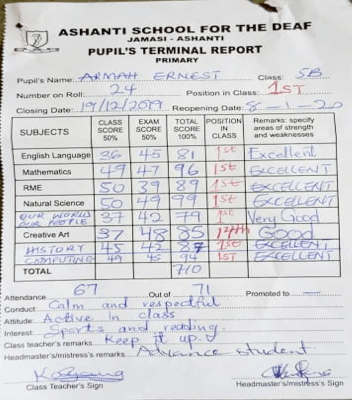 ASHANTI SCHOOL FOR THE DEAF
JAMASI - ASHANTI
PUPIL'S TERMINAL REPORT
PRIMARY
Pupil's Name: ARMAH ERNEST Class: 5B
Number on Roll: 24 Position in Class: 1ST
Closing Date: 19/12/2019 Reopening Date: 8-1-20
SUBJECTS CLASS SCORE 50% EXAM SCORE 50% TOTAL SCORE 100% POSITION IN CLASS Remarks: specify areas of strength and weaknesses
English Language 36 45 81 1st Excellent
Mathematics 49 47 96 1st EXCELLENT
RME 50 39 89 1st EXCELLENT
Natural Science 50 49 99 1st EXCELLENT
OUR WORLD OUR PEOPLE 37 42 79 1st Very Good
Creative Art 37 48 85 GOOD
HISTORY 45 42 87 1st EXCELLENT
COMPUTING 49 45 94 1st EXCELLENT
TOTAL 710
Attendance 67 Out of 71 Promoted to
Conduct: Calm and respectful
Attitude: Active in class
Interest: Sports and reading.
Class teacher's remarks Keep it up.
Headmaster's/mistress's remarks Advance student.
Class Teacher's Sign Headmaster's/mistress's Sign